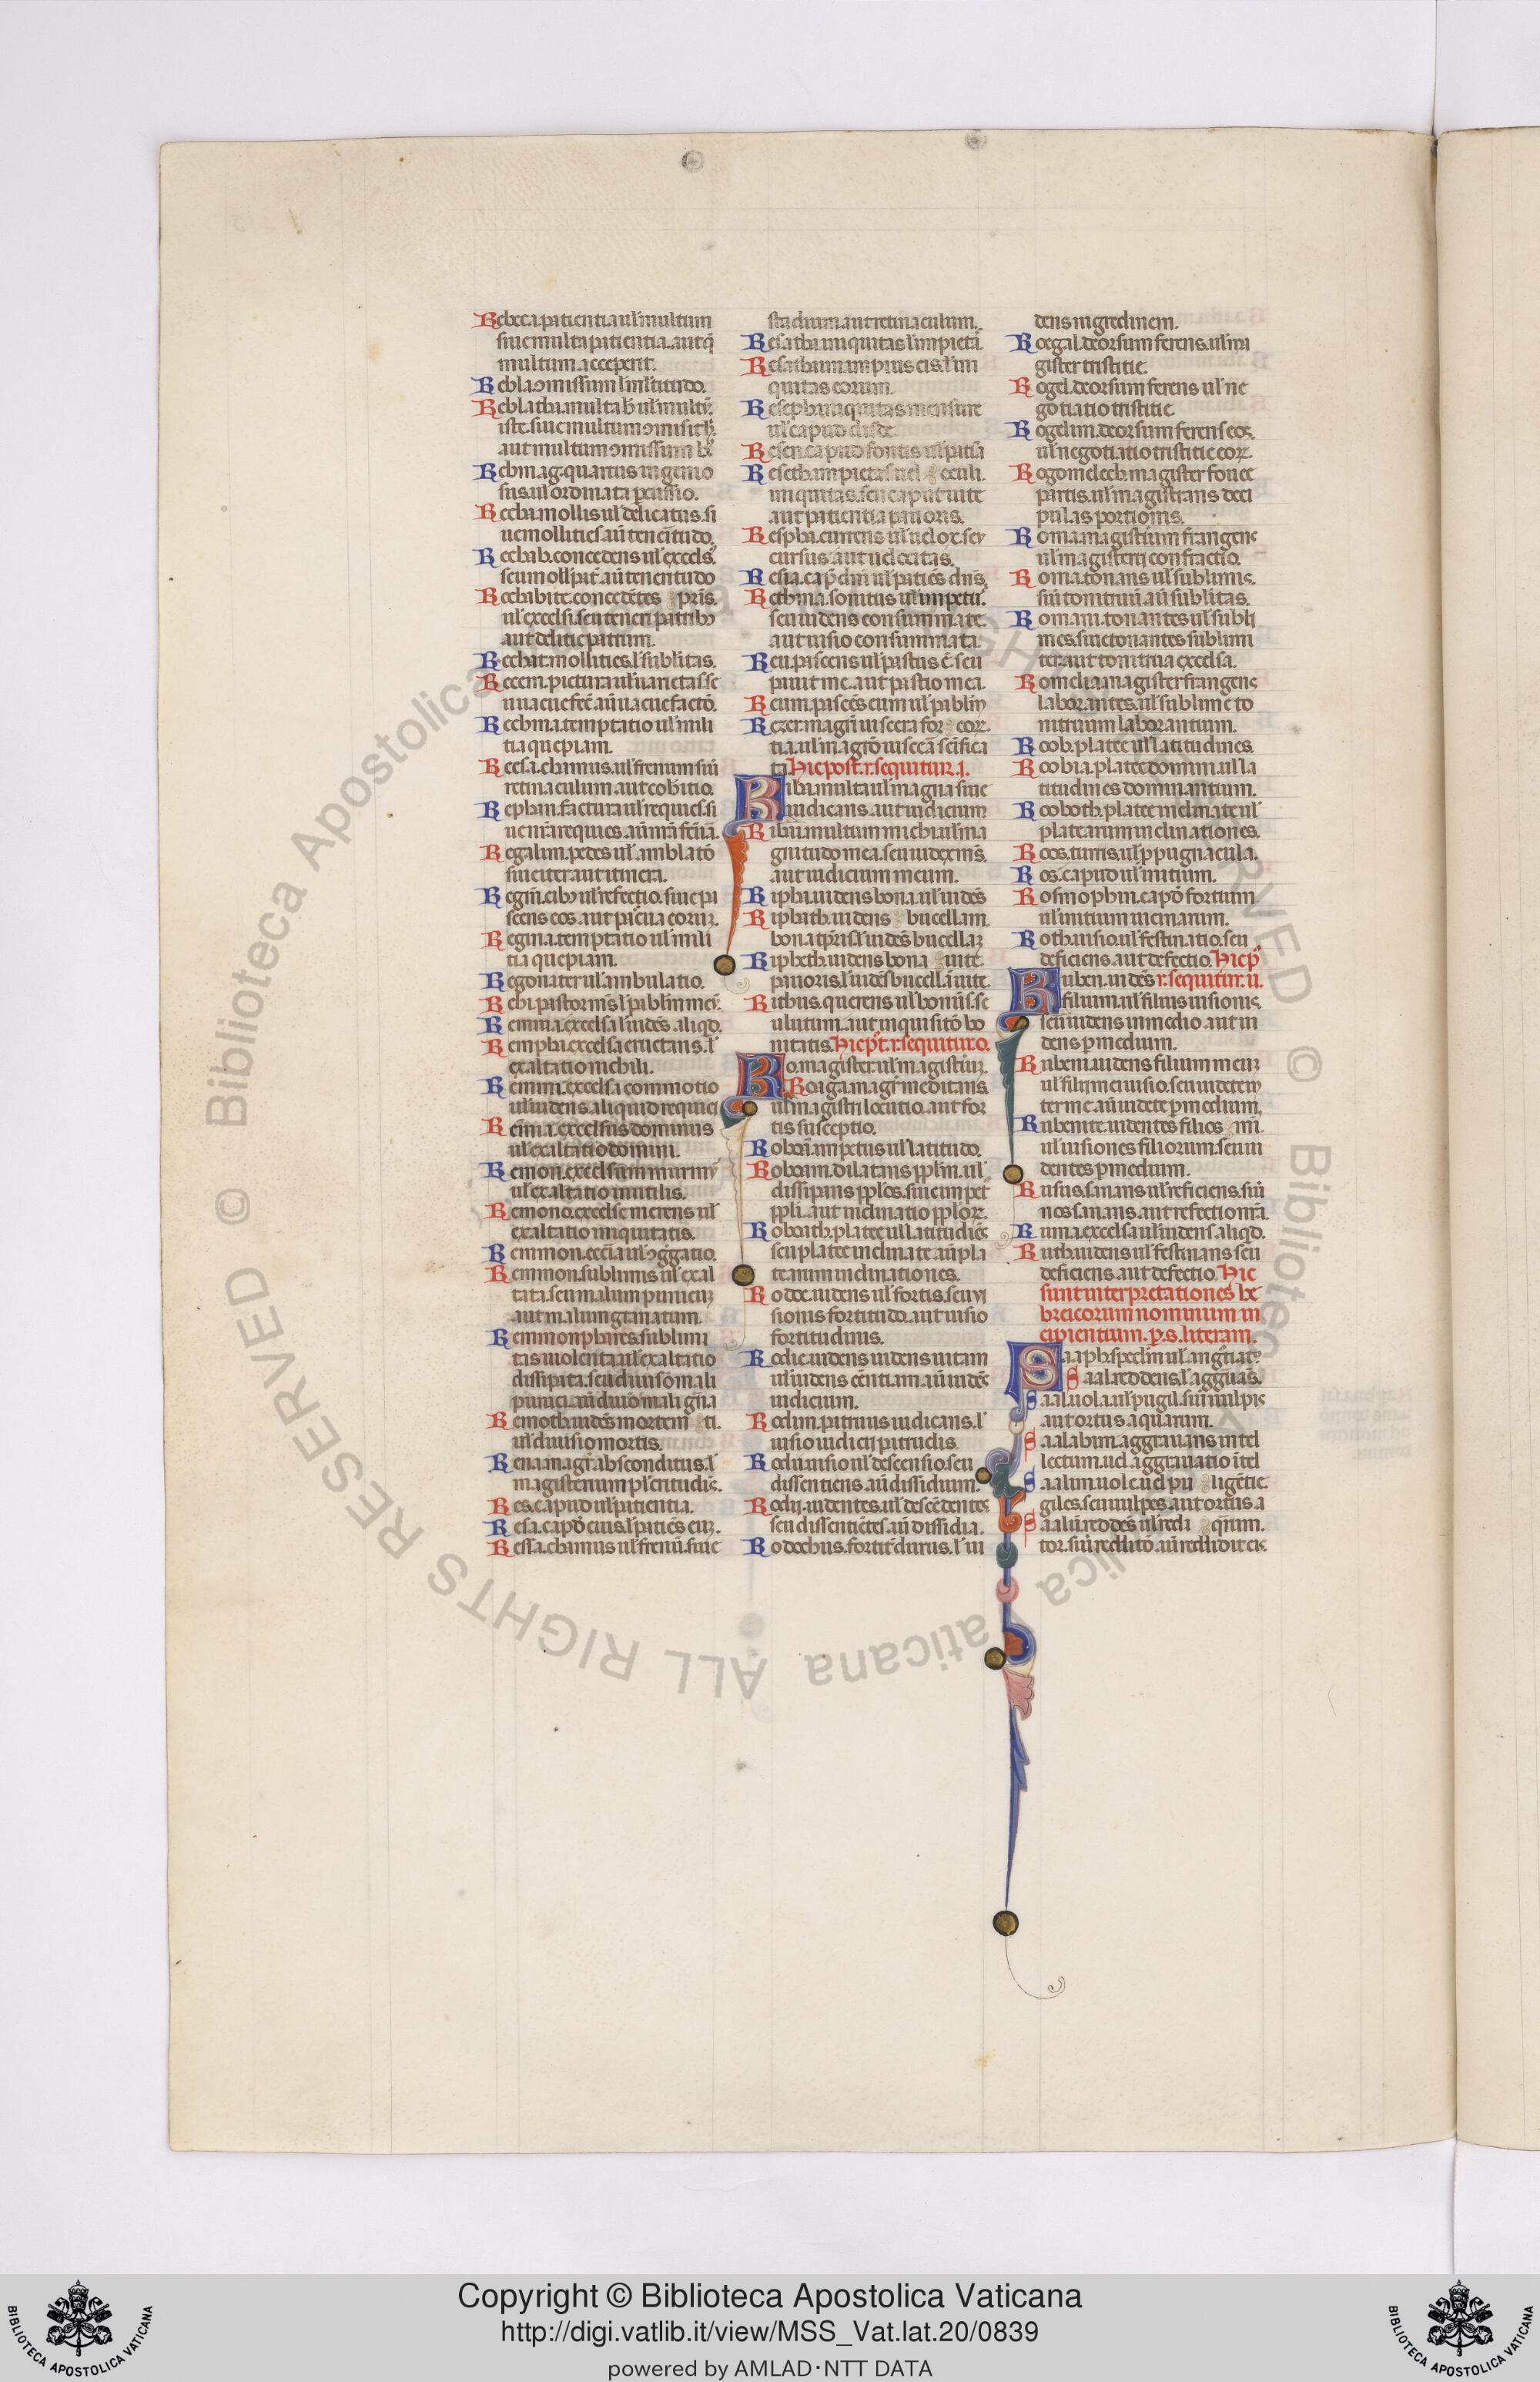 Rebeca.patientia ul'multum
siue multa patientia.aut q̄
multum acceperit.
Rebla.ↄmissum l'ml'titudo.
Reblatha.multa h̄ ul'multū
iste.siue multum ↄmisit h̄.
aut multum ↄmissum h̄
Rebmag.quartus ingenio
sus.ul'ordinata percussio.
Recha.mollis ul'delicatus.si
ue mollities aū teneritudo.
Rechab.concedens ul'excels᷒
seu mollis pat̄. aū teneritudo
Rechabite.concedētes pr̄is.
ul'excelsi.seu teneri patribꝰ
aut delitie patrum.
Rechat.mollities.l'sublitas.
Recem.pictura ul'uarietas.se
u uacuefec̄ aū uacuefactō.
Rechma.temptatio ul'mili
tia quepiam.
Recsa.chamus.ul'frenum siū
retinaculum.aut cohitio.
Rephan.factura ul'requies.si
ue nr̄a requies.aū
Regalim.pedes ul'amblatō
siue iter.aut itinera.
Regm̄.cibꝰ ul'refectio.siue pa
scens eos.aut pascua eorum.
Regma.temptatio ul'mili
tia quepiam.
Regon.iter ul'ambulatio.
Rehi.pastor meus l'pablm̄ meū.
Remma.excelsa l'uidēs aliqd.
Rempha.excelsa eructans.l'
exaltatio nichili.
Remmi.excelsa commotio
ul'uidens aliquid requici
Reima.excelsus dominus
ul'exaltatio domini.
Remon.excelsum murmꝰ
ul'exaltatio inutilis.
Remono.excelse merens ul'
exaltatio iniquitatis.
Remmon.ecc̄ia ul'ↄggatio.
Remmon.sublimis ul'exal
tata.seu malum punicum
aut malum granatum.
Remmonphares.sublimi
tas uiolenta.ul'exaltatio
dissipata.seu diuisō mali
punici.aū diuisō mali gn̄a
Remoth.uidēs mortem ti.
ul'diuisio mortis.
Rena.magr̄ absconditus.l'
magisterium pl'enitudis.
Res.caput ul'patientia.
Resa.capd̄ eius.l'patiēs eum.
Ressa.chamus ul'frenū.siue
stadium.aut retinaculum.
Resatha.iniquitas l'impietā
Resathaim.impius eis.l'ini
quitas eorum.
Resepha.iniquitas mensure
ul'capud clude
Resen.capud fontis ul'patīa
Reseth.impietas uel eculi.
iniquitas.seu caput uite
aut patientia pauoris.
Respha.currens ul'uelox.seu
cursus.aut uelocitas.
Resia.cap̄ dn̄i ul'patiēs dn̄s.
Rethma.sonitus ul'impetū.
seu uidens consummate.
aut uisio consummata.
Reu.pascens ul'pastus ē.seu
pauit me.aut pastio mea.
Reum.pascēs eum ul'pablm̄
Rezer.magr̄ uiscera for eorum
tia.ul'magrō uisceā scīfica
ta Hic post.r.sequitur.i.
Riba.multa ul'magna siue
iudicans.aut iudicium
Ribai.multum michi.ul'ma
gnitudo mea.seu iudex mīs.
aut iudicium meum.
Ripha.uidens bona.ul'uidēs
Riphath.uidens bucellam.
bona tp̄ris.l'uidēs bucellam
Riphath.uidens bona uite.
pauoris.l'uidēs bucellā uite.
Rithus.querens ul'bonus.se
u lutum.aut inquisitō bo
nitatis. Hic p̄t.r.sequitur.o.
Ro.magister.ul'magistrum.
Roaga.magr̄ meditans.
ul'magistri locutio.aut for
tis susceptio.
Roboā.impetus ul'latitudo.
Roboam.dilatans ppl'm.ul'
dissipans ppl'os.siue impet᷒
ppl'i.aut inclinatio ppl'orum.
Roboath.platee ul'latitudiēs
seu platee inclinate.aū pla
tearum inclinationes.
Rodoc.uidens ul'fortis.seu ui
sionis fortitudo.aut uisio
fortitudinis.
Rodie.uidens uidens uitam
ul'uidens cētiam.aū uidēs
iudicium.
Rodim.patruus iudicans.l'
uisio iudicij patrudis.
Rodai.uisio ul'descensio.seu
dissentiens.aū dissidium.
Rodij.uidentes.ul'descēdentes
seu dissentiētes.aū dissidia.
Rodochus.fortit᷒ durus.l'ui
dens ingredinem.
Rogal.deorsum ferens.ul'ma
gister tristitie.
Rogel.deorsum ferens ul'ne
gotiatio tristitie.
Rogelim.deorsum ferens eos.
ul'negotiatio tristitie eorum
Rogomelech.magister fouee
partis.ul'magistrans deci
pulas portionis.
Roma.magistrum frangens
ul'magisterij confractio.
Roma.tonans ul'sublimis.
siū tonitruū.aū sublitas.
Romani.tonantes ul'subli
mes.siue tonantes sublimi
ter.aut tonitrua excelsa.
Romelia.magister frangens
laborantes.ul'sublime to
nitruum laborantium.
Roob.platee ul'latitudines
Roobia.platee domini.ul'la
titudines dominantium.
Rooboth.platee inclinate ul'
platearum inclinationes.
Roos.turris.ul'propugnacula.
Ros.capud ul'initium.
Rosmophim.capd̄ fortium
ul'initium uiemarum.
Roth.uisio.ul'festinatio.seu
deficiens.aut defectio. Hic p̄
Ruben.uidēs r.sequitur.u.
filium.ul'filius uisionis.
seu uidens in medio.aut ui
dens per medium.
Rubem.uidens filium meum
ul'filij mei uisio.seu uidetem
ter me.aū uidete per medium,
Rubenite.uidentes filios mi.
ul'uisiones filiorum.seu ui
dentes per medium.
Rusus.sanans ul'reficiens.siū
nos sanans.aut refectio nr̄a.
Ruma.excelsa ul'uidens aliqd.
Ruth.uidens ul'festinans seu
deficiens.aut defectio. Hic
sunt interpretationes he
breicorum nominum in
cipientium.p.s.literam.
Saaph.specl'm ul'angr̄iate.
Saal.reddens.l'aggrauās.
Saal.uola.ul'pugil.siū uulpis
aut ortus aquarum.
Saalabim.aggrauans intel
lectum.uel aggrauatio ītel
Saalim.uole.ul'pu ligētie.
giles.seu uulpes.aut ortus a
Saalū.reddēs ul'redi quarum.
tor.siū redditō.aū reddidit eis.
Copyright © Biblioteca Apostolica Vaticana
http://digi.vatlib.it/view/MSS_Vat.lat.20/0839
powered by AMLAD·NTT DATA
BIBLIOTECA APOSTOLICA VATICANA
BIBLIOTECA APOSTOLICA VATICANA
© Biblioteca Apostolica Vaticana ALL RIGHTS RESERVED
© Biblioteca Apostolica Vaticana ALL RIGHTS RESERVED